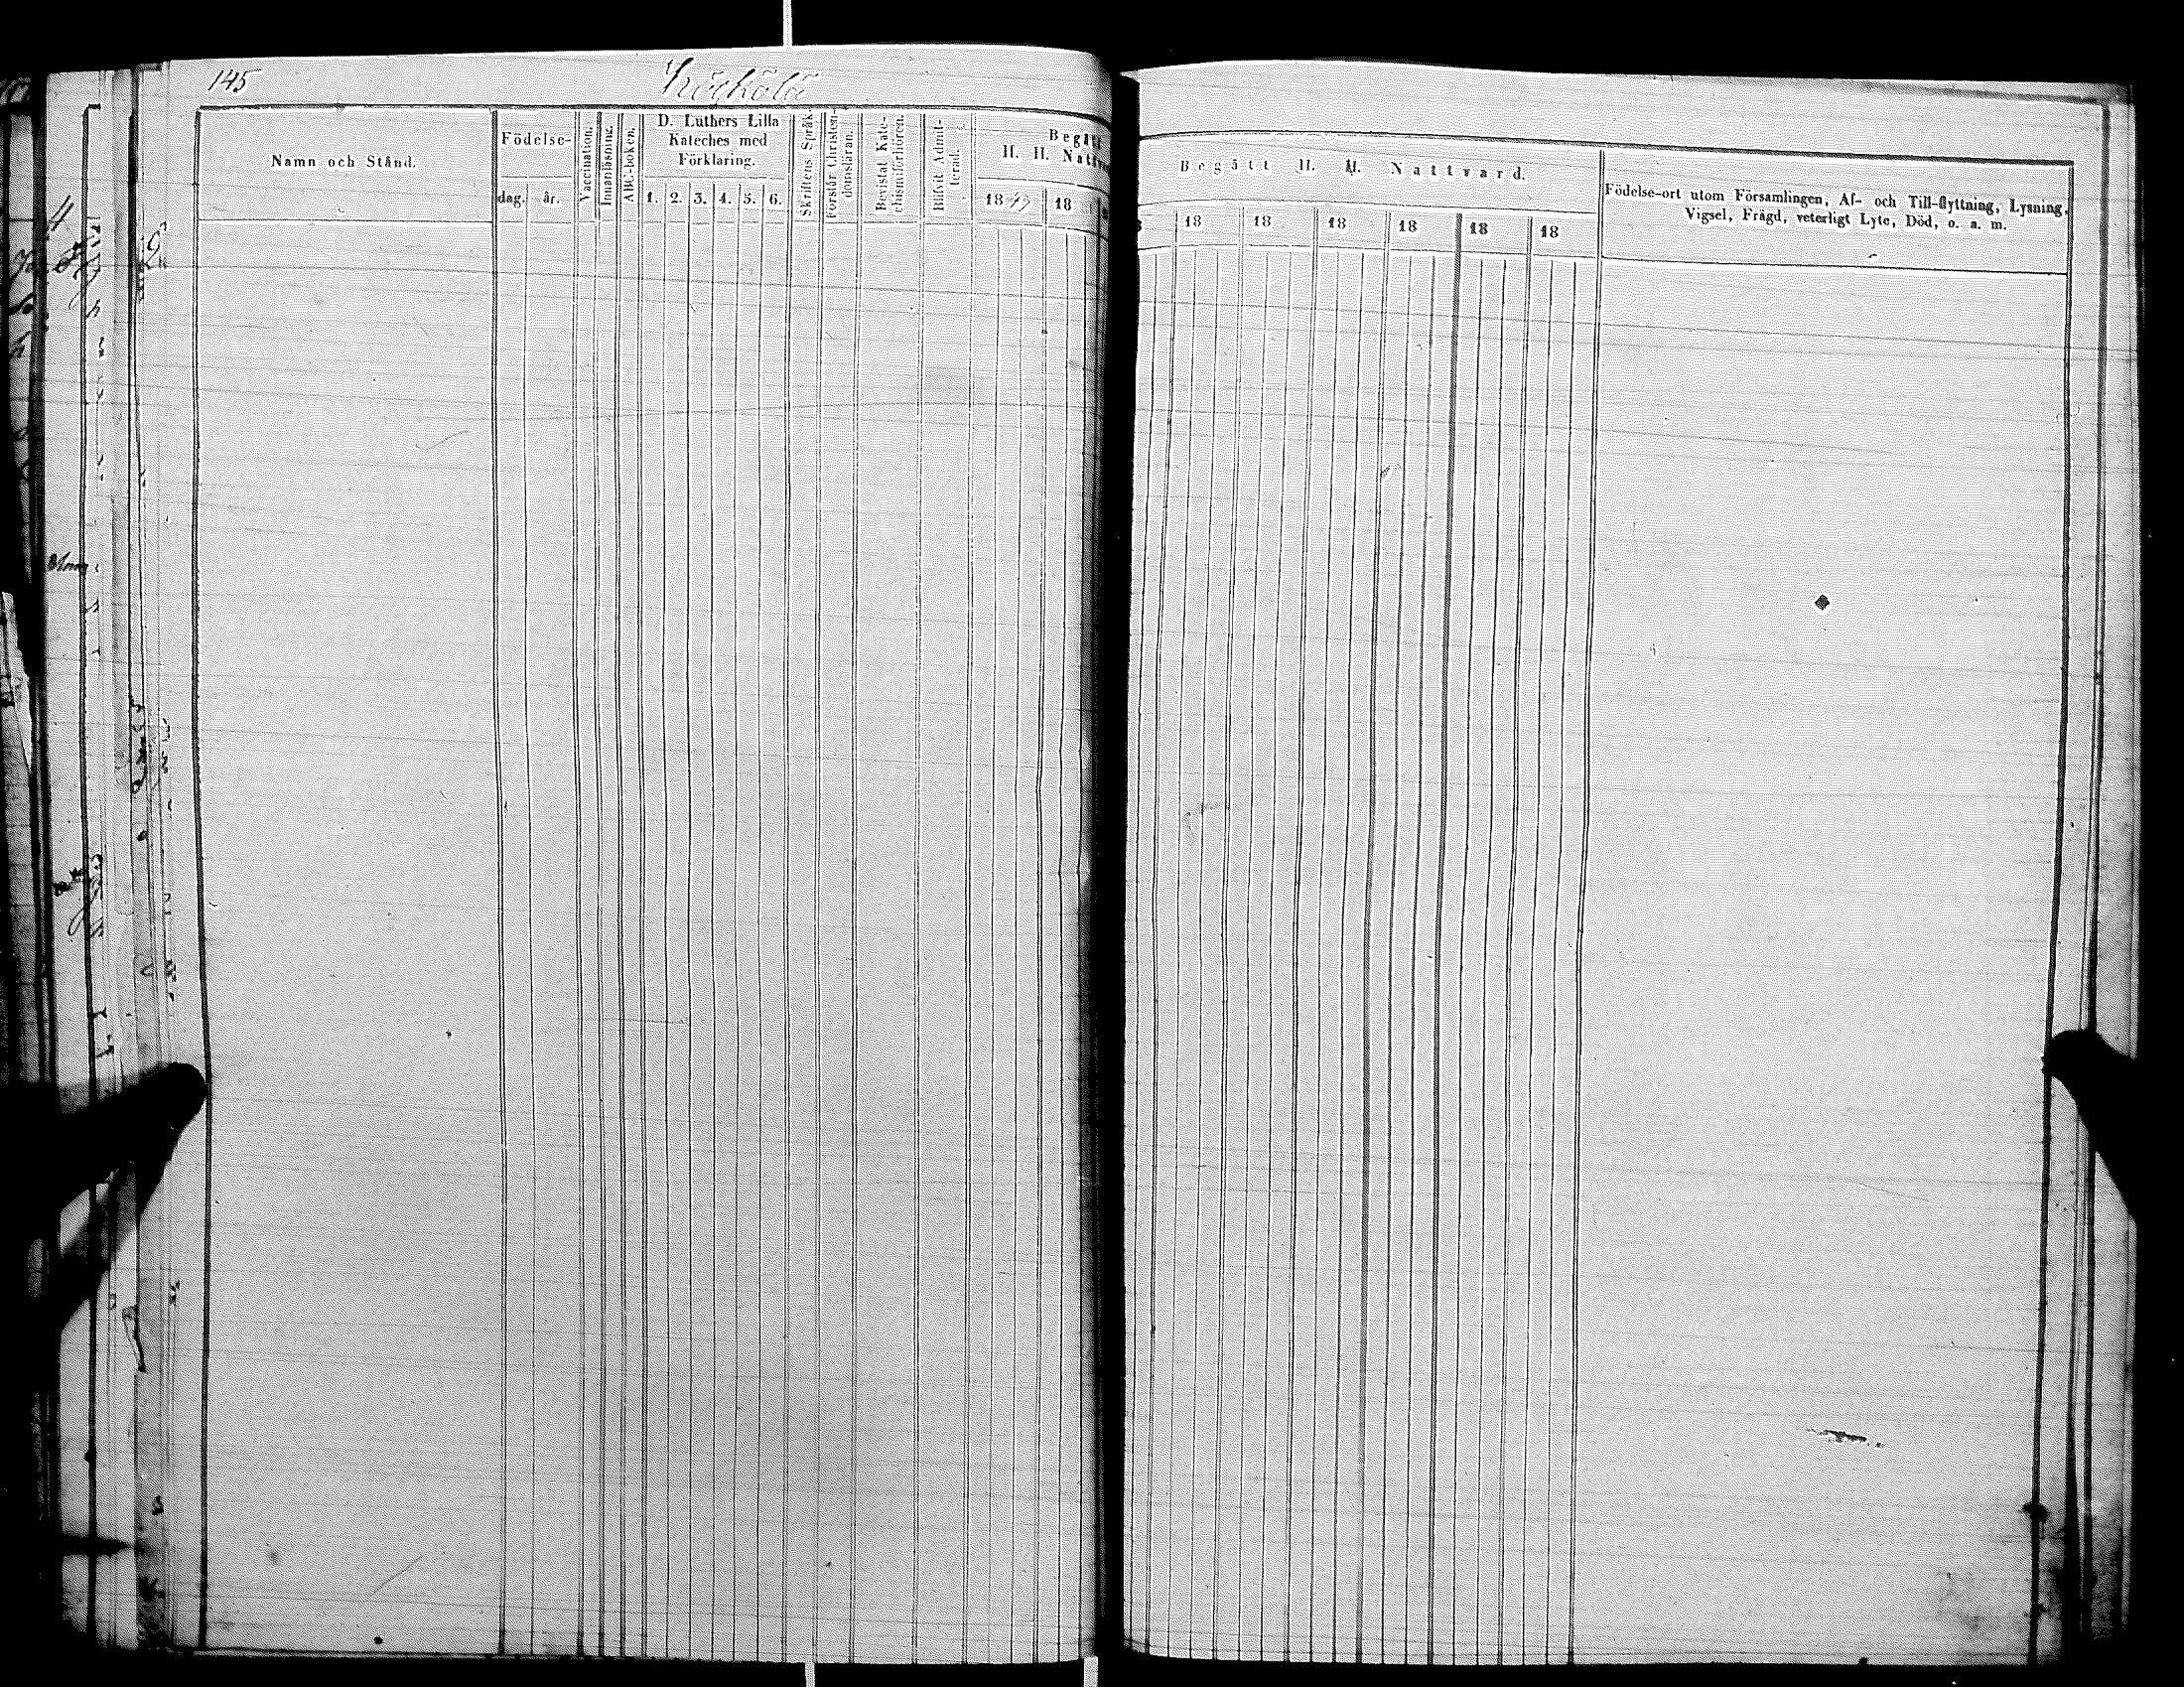 145
Namn och Stånd.
Födelse-
dag. år.
Vaccination.
Innanläsning.
ABC-boken.
D. Luthers Lilla
Kateches med
Förklaring.
1. 2. 3. 4. 5. 6.
Skriftens Språk.
Förstår Christen-
domsläran.
Bevistat Kate-
chismiförhören.
Blifvit Admit-
terad.
Begått
H. H. Nattv
18 18
Begått H. H. Nattvard.
18 18 18 18 18 18
Födelse-ort utom Församlingen, Af- och Till-flyttning, Lysning,
Vigsel, Frägd, veterligt Lyte, Död, o. a. m.